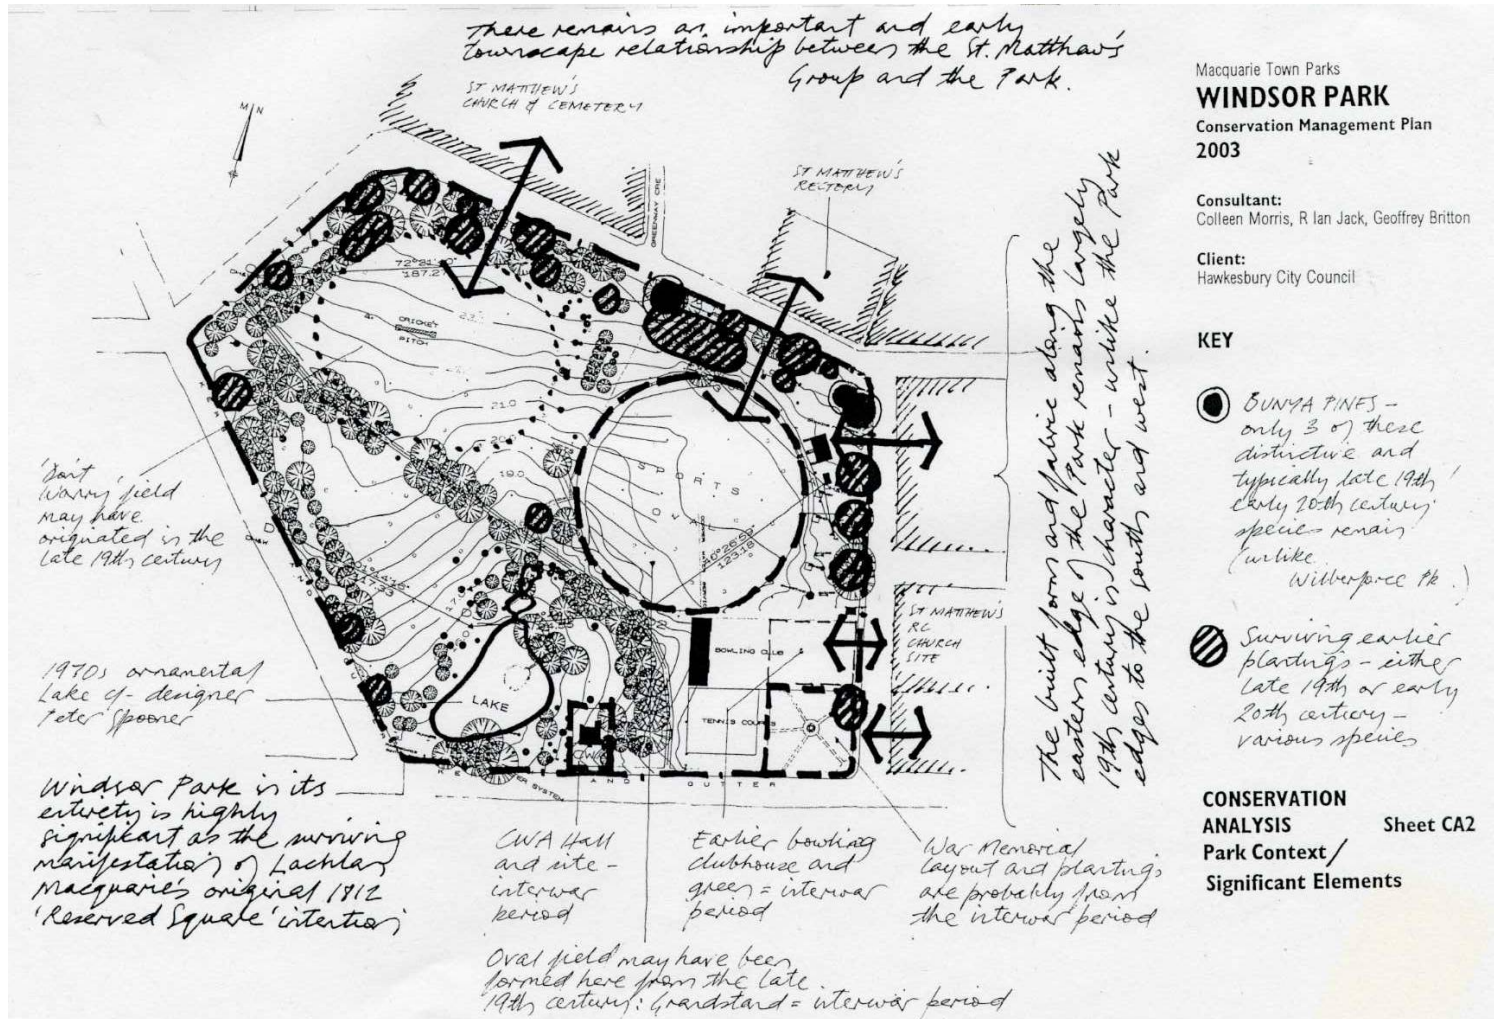 There remains an important and early
townscape relationship between the St. Matthew's
Group and the Park.
ST MATTHEW'S
CHURCH & CEMETERY
M N
GREENWAY CRE
ST MATTHEW'S
RECTORY
72°21'
187.2
CRICKET
PITCH
21.0
19.0
SPORTS
OVAL
123.18
BOWLING CLUB
TENNIS COURTS
LAKE
CWA
AND GUTTER
ST MATTHEW'S
RC
CHURCH
SITE
'Don't
Worry' field
may have
originated in the
late 19th century
1970s ornamental
Lake by designer
Peter Spooner
Windsor Park in its
entirety is highly
significant as the surviving
manifestation of Lachlan
Macquarie's original 1812
'Reserved Square' intention
CWA Hall
and site -
interwar
period
Earlier bowling
clubhouse and
green = interwar
period
War Memorial
layout and plantings
are probably from
the interwar period
Oval field may have been
formed here from the late
19th century: Grandstand = interwar period
The built forms and fabric along the
eastern edge of the Park remains largely
19th century in character - unlike the Park
edges to the south and west.
Macquarie Town Parks
WINDSOR PARK
Conservation Management Plan
2003
Consultant:
Colleen Morris, R Ian Jack, Geoffrey Britton
Client:
Hawkesbury City Council
KEY
BUNYA PINES -
only 3 of these
distinctive and
typically late 19th/
early 20th century
species remain
(unlike
Wilberforce Pk.)
Surviving earlier
plantings - either
late 19th or early
20th century -
various species
CONSERVATION
ANALYSIS Sheet CA2
Park Context/
Significant Elements